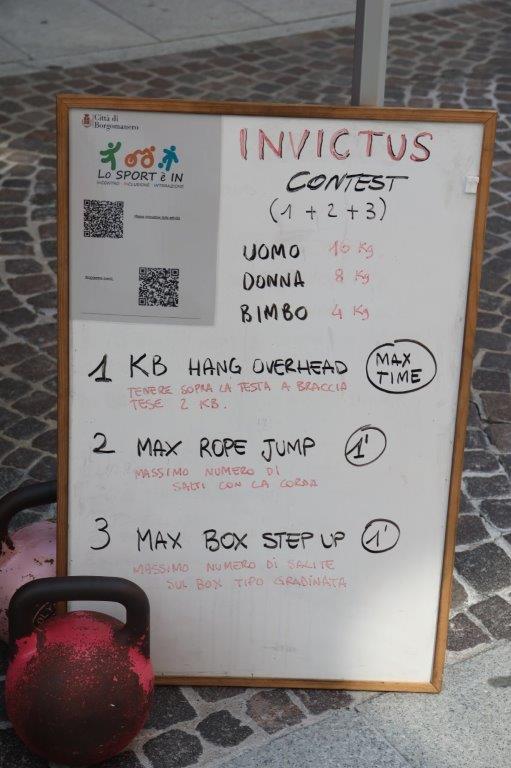 Città di
Borgomanero
LO SPORT è IN
INCONTRO INCLUSIONE INTERAZIONE
INVICTUS
CONTEST
(1+2+3)
UOMO 16 Kg
DONNA 8 Kg
BIMBO 4 Kg
1 KB HANG OVERHEAD MAX TIME
TENERE SOPRA LA TESTA A BRACCIA
TESE 2 KB.
2 MAX ROPE JUMP 1'
MASSIMO NUMERO DI
SALTI CON LA CORDA
3 MAX BOX STEP UP 1'
MASSIMO NUMERO DI SALITE
SUL BOX TIPO GRADINATA